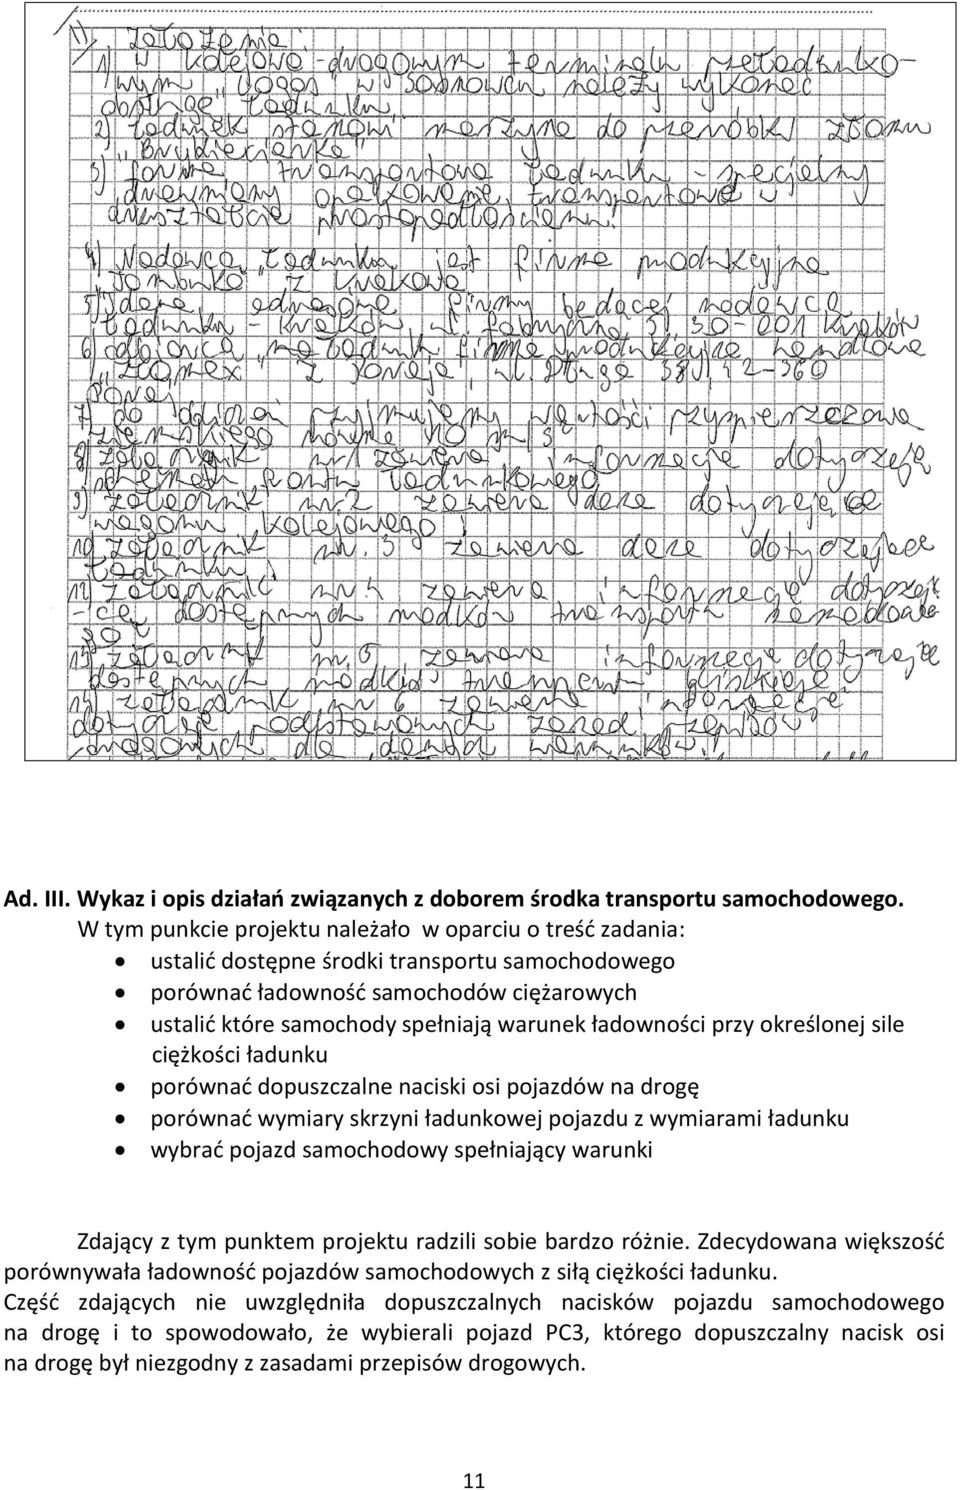 Założenia:
1) w kolejowo-drogowym terminalu przeładunko-
wym „Logos" w Sosnowcu należy wykonać
ładunku
2) ładunek stanowi maszyna do przeróbki złomu
3) forma transportowa ładunku - specjalny
drewniany opakowanie transportowe w
kształcie prostopadłościanu!
4) Nadawcą ładunku jest firma produkcyjna
z Krakowa
5) Dane adresowe firmy będącej nadawcą
ładunku - Kraków, ul. Fabryczna 30-001 Kraków
6) odbiorca ładunku firma produkcyjna handlowa
„Złomex" z ul. Długa 38 42-360
Poraj
7) do obliczeń przyjmujemy wartość przyspieszenia
ziemskiego równą 10 m
8) załącznik nr 1 zawiera informacje dotyczące
frontu ładunkowego
9) załącznik nr 2 zawiera dane dotyczące
wagonu kolejowego
10) załącznik nr. 3 zawiera dane dotyczące
ładunku
załącznik nr 4 zawiera informacje dotyczą-
-ce dostępnych środków transportu samochodowe
go
załącznik nr. 5 zawiera informacje dotyczące
dostępnych środków transportu bliskiego
14) załącznik nr 6 zawiera informacje
dotyczące podstawowych zasad przepisów
drogowych dla warunków
Ad. III. Wykaz i opis działań związanych z doborem środka transportu samochodowego.
W tym punkcie projektu należało w oparciu o treść zadania:
• ustalić dostępne środki transportu samochodowego
• porównać ładowność samochodów ciężarowych
• ustalić które samochody spełniają warunek ładowności przy określonej sile
ciężkości ładunku
• porównać dopuszczalne naciski osi pojazdów na drogę
• porównać wymiary skrzyni ładunkowej pojazdu z wymiarami ładunku
• wybrać pojazd samochodowy spełniający warunki
Zdający z tym punktem projektu radzili sobie bardzo różnie. Zdecydowana większość
porównywała ładowność pojazdów samochodowych z siłą ciężkości ładunku.
Część zdających nie uwzględniła dopuszczalnych nacisków pojazdu samochodowego
na drogę i to spowodowało, że wybierali pojazd PC3, którego dopuszczalny nacisk osi
na drogę był niezgodny z zasadami przepisów drogowych.
11